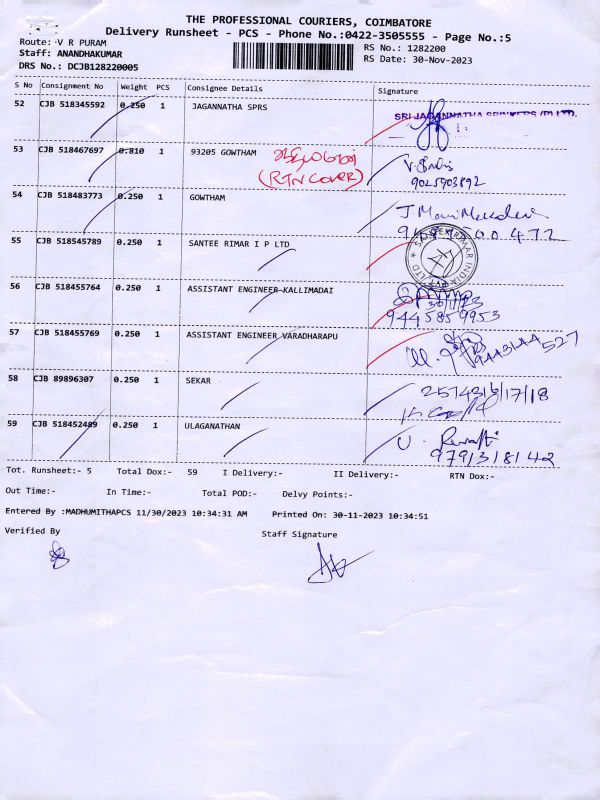 THE PROFESSIONAL COURIERS, COIMBATORE
Delivery Runsheet - PCS - Phone No.:0422-3505555 - Page No.:5
Route: V R PURAM
RS No.: 1282200
Staff: ANANDHAKUMAR
RS Date: 30-Nov-2023
DRS No.: DCJB128220005
S No Consignment No Weight PCS Consignee Details Signature
52 CJB 518345592 0.250 1 JAGANNATHA SPRS
SRI JAGANNATHA
53 CJB 518467697 0.810 1 93205 GOWTHAM
(RTN COVER)
9025903892
54 CJB 518483773 0.250 1 GOWTHAM
55 CJB 518545789 0.250 1 SANTEE RIMAR I P LTD
56 CJB 518455764 0.250 1 ASSISTANT ENGINEER KALLIMADAI
30/11/23
9445859953
57 CJB 518455769 0.250 1 ASSISTANT ENGINEER VARADHARAPU
9443144527
58 CJB 89896307 0.250 1 SEKAR
2574316/17/18
59 CJB 518452489 0.250 1 ULAGANATHAN
U. Revathi
9791318142
Tot. Runsheet:- 5 Total Dox:- 59 I Delivery:- II Delivery:- RTN Dox:-
Out Time:- In Time:- Total POD:- Delvy Points:-
Entered By :MADHUMITHAPCS 11/30/2023 10:34:31 AM Printed On: 30-11-2023 10:34:51
Verified By
Staff Signature